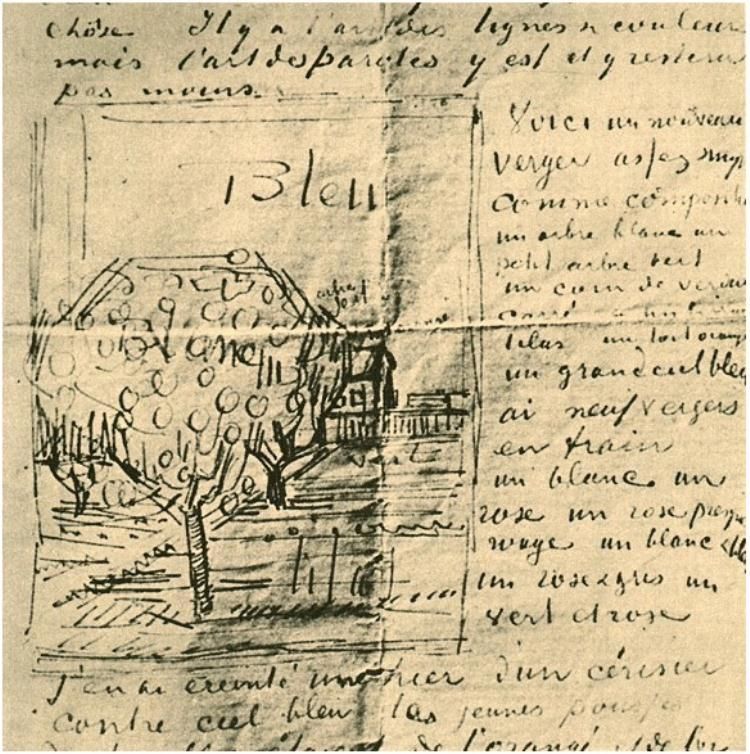 chôse Il y a l'art des lignes & couleurs
mais l'art des paroles y est et y restera
pas moins.
Bleu
blanc
vert
Voici un nouveau
verger assez simple
comme composition
un arbre blanc un
petit arbre vert
un coin de verdure
carré
lilas un toit orangé
un grand ciel bleu
ai neuf vergers
en train
un blanc un
rose un rose presque
rouge un blanc & bleu
un rose & gris un
vert et rose
J'en ai éreinté un hier d'un cérisier
contre ciel bleu les jeunes pousses
de l'orangé